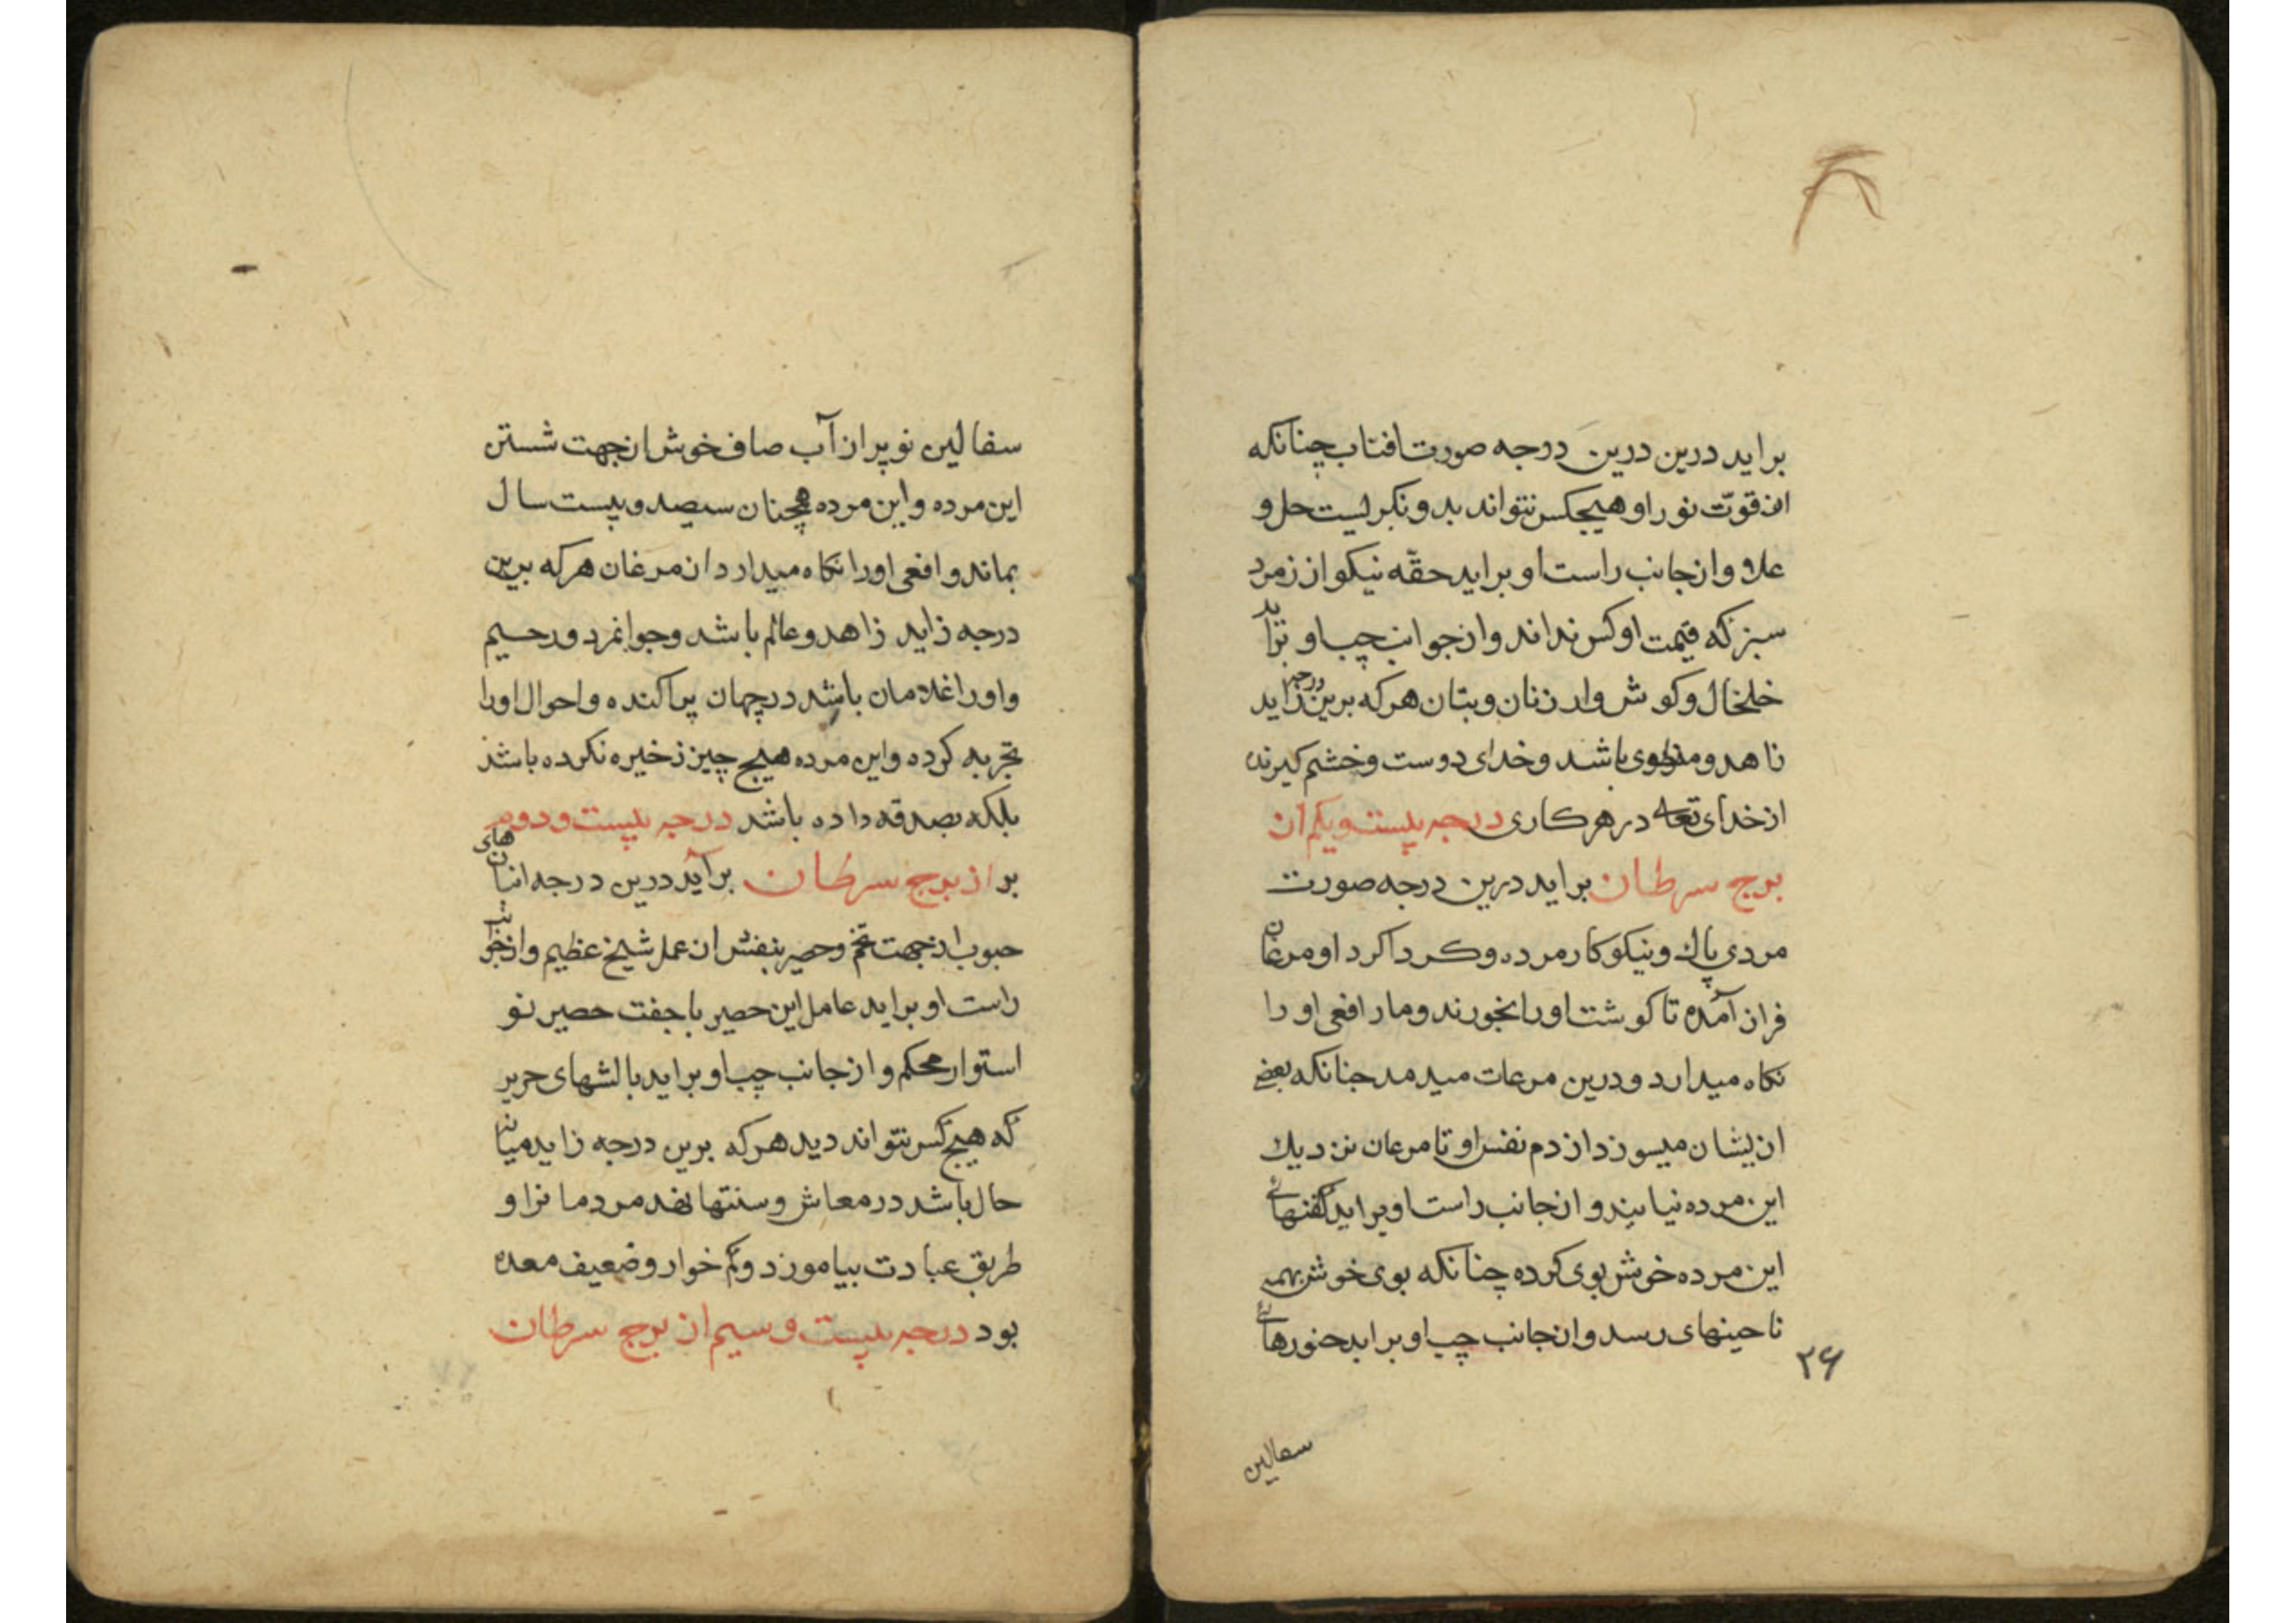 براید درین درین درجه صورت افتاب چنانکه
از قوّت نور او هیچکس نتواند بدو نکریست حل و
علا و از جانب راست او براید حقّه نیکو از زمرد
سبز که قیمت او کس نداند و از جوانب چپ او براید
خلخال و کوش وار زنان و بتان هرکه برین درجه زاید
زاهد و باشد و خدای دوست و خشم کیرنده
از خدای تعالی در هر کاری درجه بیست و یکم از
برج سرطان براید درین درجه صورت
مردی پاک و نیکو کار مرده و کرداکرد او مرغان
فراز آمده تا کوشت او را بخورند و مار افعی او را
نکاه میدارد و درین مرعات میدمد جنانکه بعضی
ازیشان میسوزد از دم نفس او تا مرعان نزدیک
این مرده نیایند و از جانب راست او براید کفنهای
این مرده خوش بوی کرده چنانکه بوی خوش بهمه
ناحینهای رسد و از جانب چپ او براید خنورهای
۲۶
سفالین
سفالین نو پر از آب صاف خوش از جهت شستن
این مرده و این مرده همچنان سیصد و بیست سال
بماند و افعی او را نکاه میدارد از مرغان هرکه برین
درجه زاید زاهد و عالم باشد و جوانمرد و رحیم
و او را غلامان باشد در جهان پراکنده و احوال او را
تجربه کرده و این مرده هیچ چیز ذخیره نکرده باشد
بلکه بصدقه داده باشد درجه بیست و دوم
بر از برج سرطان برآید درین درجه انبانهای
حبوب از جهت تخم و حصیر بنفش از عمل شیخ عظیم و از جوانب
راست او براید عامل این حصیر با جفت حصیر نو
استوار محکم و از جانب چپ او براید بالشهای حریر
که هیچ کس نتواند دید هرکه برین درجه زاید میانه
حال باشد در معاش و سنتها نهد مردمانرا و
طریق عبادت بیاموزد و کم خوار و ضعیف معده
بود درجه بیست و سیم از برج سرطان